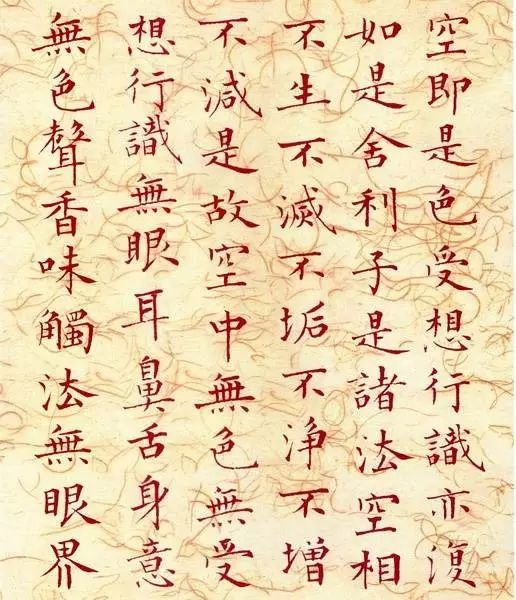 空即是色受想行識亦復
如是舍利子是諸法空相
不生不滅不垢不浄不增
不減是故空中無色無受
想行識無眼耳鼻舌身意
無色聲香味觸法無眼界